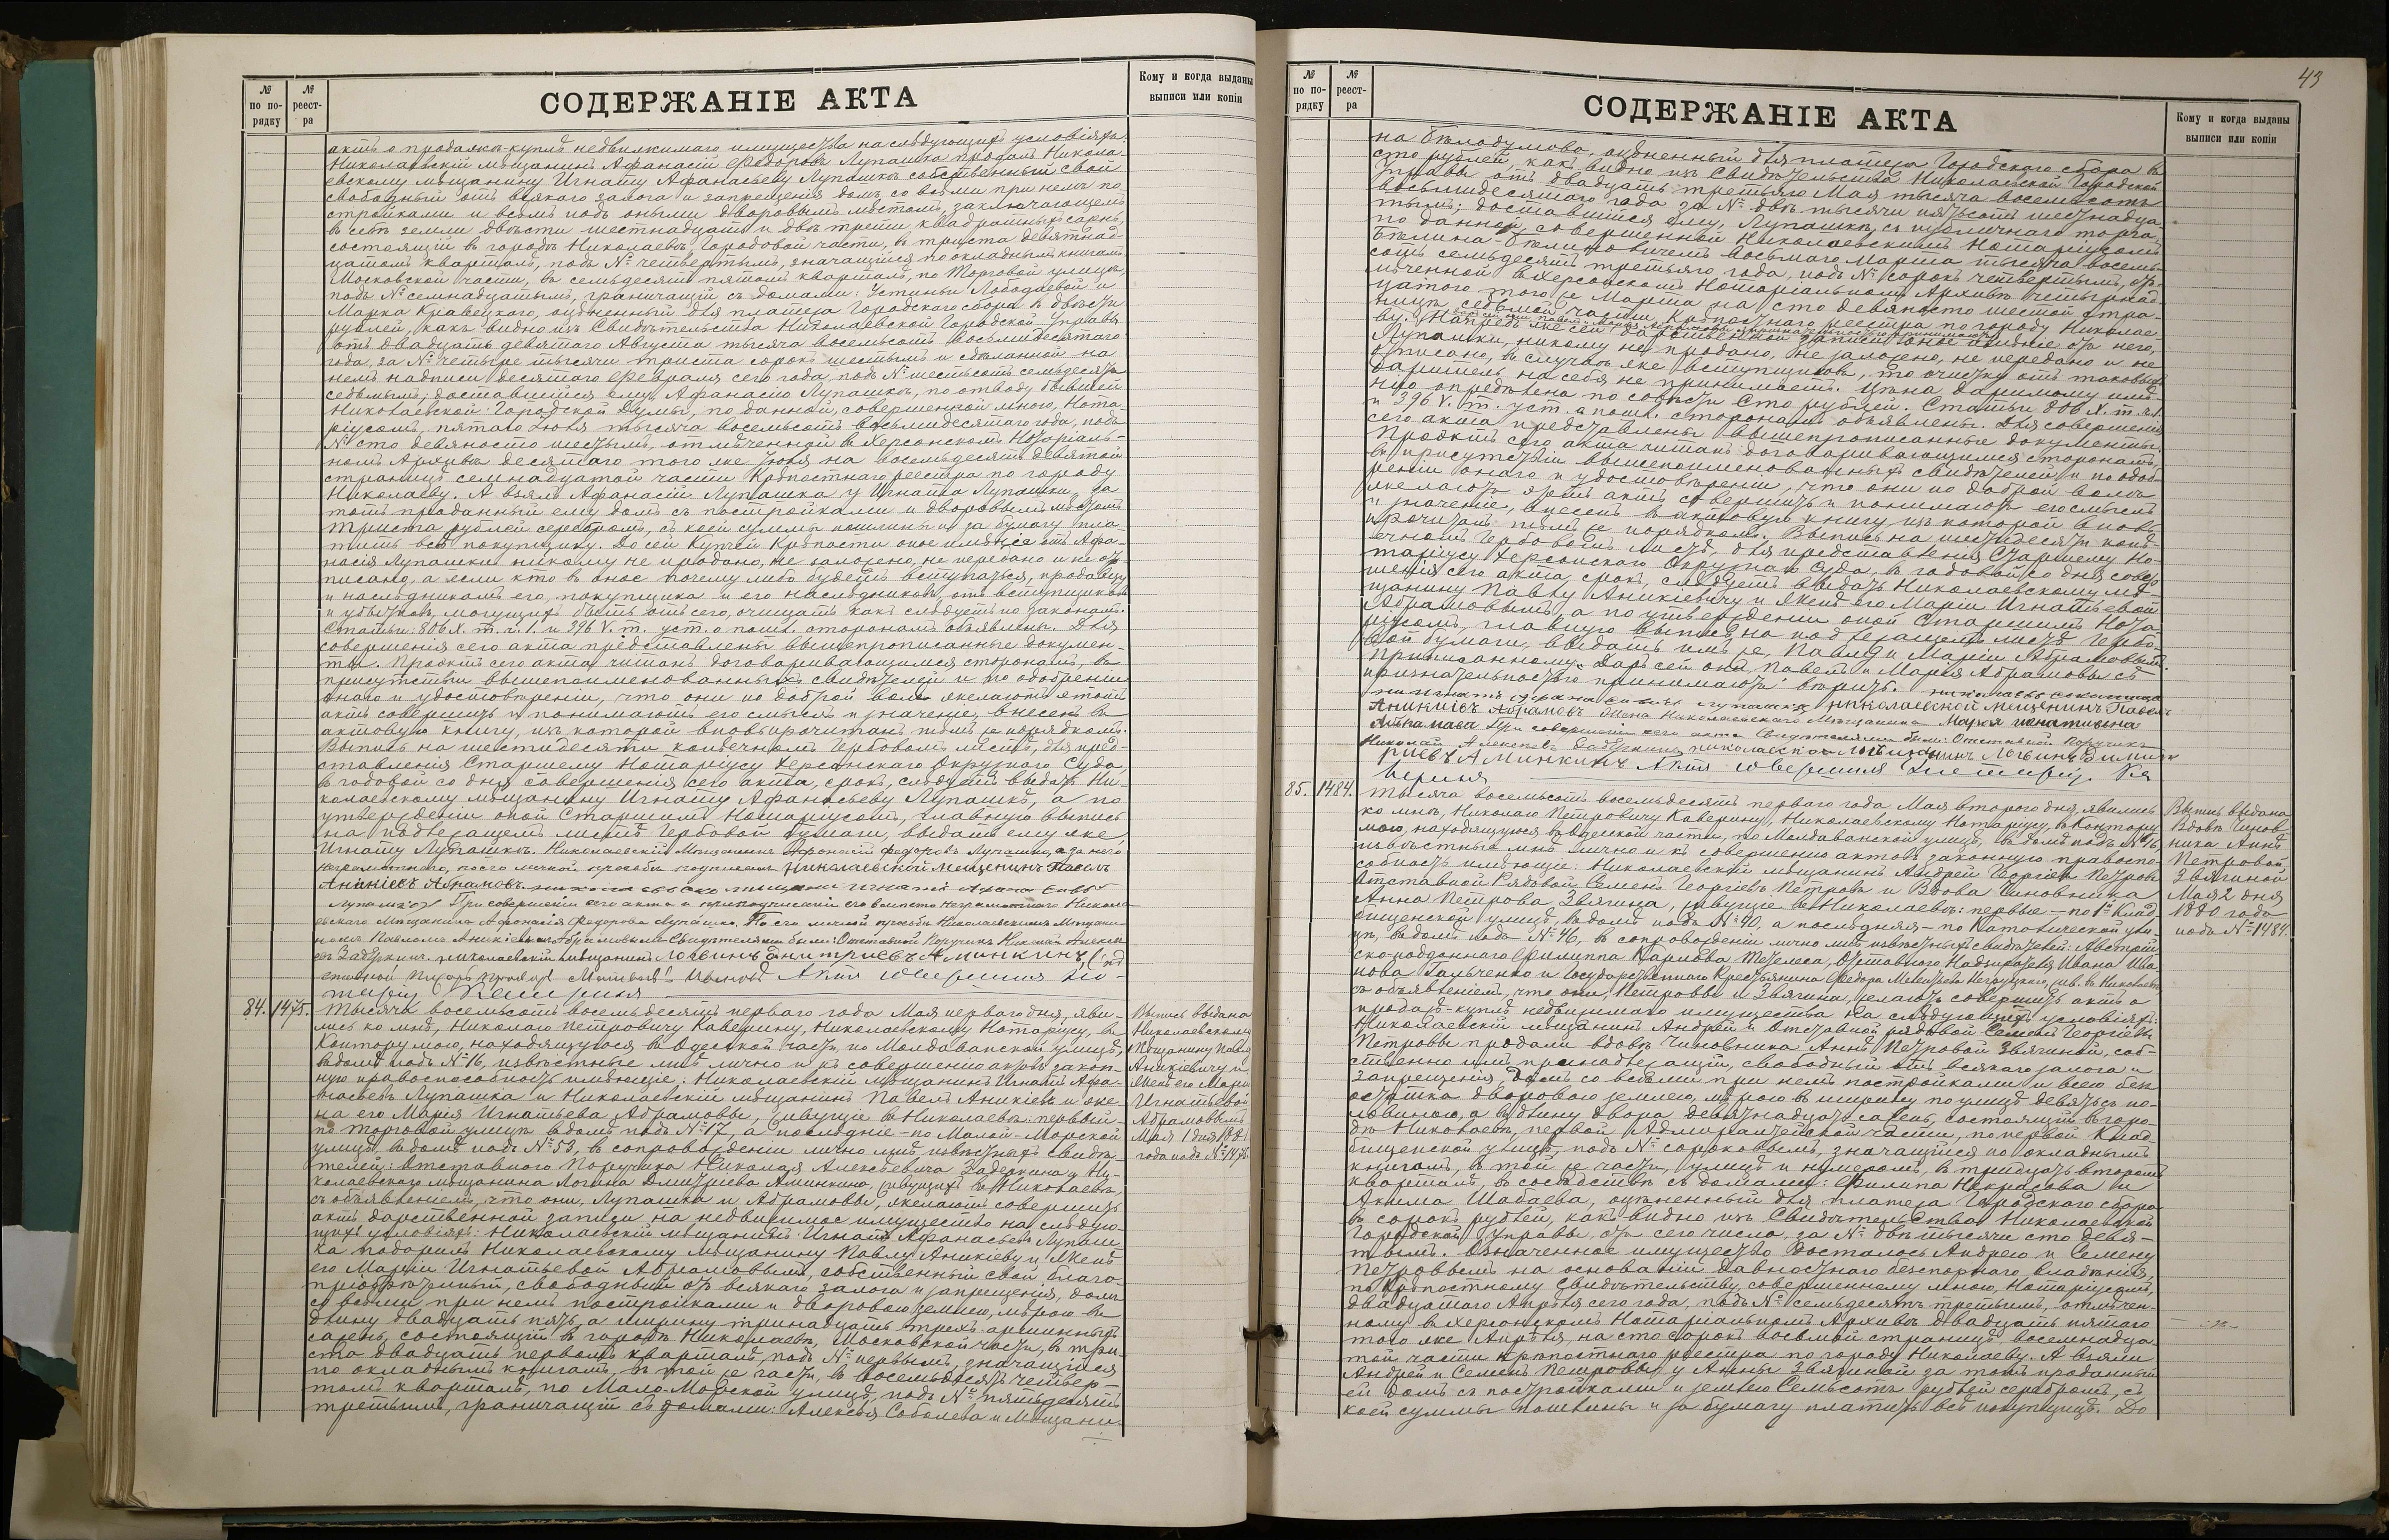 №
по по-
рядку
№
реест-
ра
СОДЕРЖАНІЕ АКТА
Кому и когда выданы
выписи или копіи
актъ о продажѣ-куплѣ недвижимаго имущества на слѣдующихъ условіяхъ:
Николаевскій мѣщанинъ Афанасій Федоровъ Лупашка продалъ Никола-
евскому мѣщанину Игнату Афанасьеву Лупашкѣ собственный свой
свободный отъ всякаго залога и запрещенія домъ со всѣми при немъ по-
стройками и всѣмъ подъ оными дворовымъ мѣстомъ, заключающемъ
въ себѣ земли двѣсти шестнадцать и двѣ трети квадратныхъ сажнь,
состоящій въ городѣ Николаевѣ, Городовой части, въ триста девятнад-
цатомъ кварталѣ, подъ № четвертымъ, значащійся по окладнымъ книгамъ
Московской части, въ семьдесятъ пятомъ кварталѣ, по Торговой улицѣ,
подъ № семнадцатымъ, граничащій съ домами: Устиньи Лободаевой и
Марка Кравецкаго, оцѣненный для платежа Городскаго сбора въ двѣсти
рублей, какъ видно изъ Свидѣтельства Николаевской Городской Управы
отъ двадцать девятаго Августа тысяча восемьсотъ восьмидесятаго
года, за № четыре тысячи триста сорокъ шестымъ и сдѣланной на
немъ надписи десятаго Февраля сего года, подъ № шестьсотъ семьдесятъ
седьмымъ, доставшійся ему, Афанасію Лупашкѣ, по отводу бывшей
Николаевской Городской Думы, по данной, совершенной мною, Нота-
ріусомъ, пятаго Іюля тысяча восемьсотъ восьмидесятаго года, подъ
№ сто девяносто шестымъ, отмѣченной въ Херсонскомъ Нотаріаль-
номъ Архивѣ десятаго того же Іюля на восемьдесятъ девятой
страницѣ семнадцатой части Крѣпостнаго реестра по городу
Николаеву. А взялъ Афанасій Лупашка у Игната Лупашки за
тотъ проданный ему домъ съ постройками и дворовымъ мѣстомъ
триста рублей серебромъ, съ коей суммы пошлины и за бумагу пла-
тить всѣ покупщику. До сей Купчей Крѣпости оное имѣніе отъ Афа-
насія Лупашки никому не продано, не заложено, не передано и не от-
писано, а если кто въ оное почему либо будетъ вступаться, продавцу
и наслѣдникамъ его, покупщика и его наслѣдниковъ отъ вступщиковъ
и убытковъ, могущихъ быть отъ сего, очищать какъ слѣдуетъ по законамъ.
Статьи: 806 X. т. ч. 1. и 396 V. т. уст. о пошл. сторонамъ объявлены. Для
совершенія сего акта представлены вышепрописанные докумен-
ты. Проэктъ сего акта читанъ договаривающимся сторонамъ, въ
присутствіи вышепоименованныхъ свидѣтелей и по одобреніи
онаго и удостовѣреніи, что они по доброй волѣ желаютъ этотъ
актъ совершить и понимаютъ его смыслъ и значеніе, внесенъ въ
актовую книгу, изъ которой вновь прочитанъ тѣмъ же порядкомъ.
Выпись на шестидесяти копѣечномъ Гербовомъ листѣ, для пред-
ставленія Старшему Нотаріусу Херсонскаго Окружнаго Суда,
въ годовой со дня совершенія сего акта, срокъ, слѣдуетъ выдать Ни-
колаевскому мѣщанину Игнату Афанасьеву Лупашкѣ, а по
утвержденіи оной Старшимъ Нотаріусомъ, главную выпись
на подлежащемъ листѣ Гербовой бумаги, выдать ему же
Игнату Лупашкѣ. Николаевскій Мѣщанинъ Афонасій Федоровъ Лупашка, а за него
неграмотнаго, по его личной просьбѣ подписался Николаевской мещенинъ Павелъ
Аникіевъ Абрамовъ. николаевско мищани игнатій Афана сивъ
Лупашка При совершеніи сего акта и приподписаніи его вмѣсто неграмотнаго Никола-
евскаго Мѣщанина Афанасія Федорова Лупашка, По его личной просьбѣ Николаевскимъ Мѣщани-
номъ Павломъ Аникіевымъ Абрамовымъ Свидѣтелями были: Отставной Поручикъ Николай Алексѣ-
евъ Задеркинъ. николаевскій мѣщанинъ Логвинъ дмитриевъ Аминкинъ
Актъ совершилъ Но-
таріусъ Каверинъ
84. 1475.
Тысяча восемьсотъ восемьдесятъ перваго года Мая перваго дня, яви-
лись ко мнѣ, Николаю Петровичу Каверину, Николаевскому Нотаріусу, въ
Контору мою, находящуюся въ Одесской части, по Молдаванской улицѣ,
въ домѣ подъ № 16, извѣстные мнѣ лично и къ совершенію актовъ закон-
ную правоспособность имѣющіе: Николаевскій мѣщанинъ Игнатъ Афа-
насьевъ Лупашка и Николаевскій мѣщанинъ Павелъ Аникіевъ и же-
на его Марія Игнатьева Абрамовы, живущіе въ Николаевѣ: первый-
по торговой улицѣ въ домѣ подъ № 17, а послѣдніе - по Малой-Морской
улицѣ, въ домѣ подъ № 53, въ сопровожденіи лично мнѣ извѣстныхъ свидѣ-
телей: отставнаго Поручика Николая Алексѣевича Задеркина и Ни-
колаевскаго мѣщанина Логина Дмитріева Аминкина, живущихъ въ Николаевѣ,
съ объявленіемъ, что они, Лупашка и Абрамовы, желаютъ совершить
актъ дарственной записи на недвижимое имущество на слѣдую-
щихъ условіяхъ: Николаевскій мѣщанинъ Игнатъ Афанасьевъ Лупаш-
ка подарилъ Николаевскому мѣщанину Павлу Аникіеву и женѣ
его Маріи Игнатьевой Абрамовымъ, собственный свой, благо-
пріобрѣтенный, свободный отъ всякаго залога и запрещенія, домъ
со всѣми при немъ постройками и дворовою землею, мѣрою въ
длину двадцать пять, а ширину тринадцать трехъ-аршинныхъ
сажень, состоящій въ городѣ Николаевѣ, Московской части, въ три-
ста двадцать первомъ кварталѣ, подъ № первымъ, значащійся
по окладнымъ книгамъ, въ той же части, въ восемьдесятъ четвер-
томъ кварталѣ, по Мало-Морской улицѣ, подъ № пятьдесятъ
третьимъ, граничащій съ домами: Алексѣя Соболева и Мѣщани-
Выпись выдана
Николаевскому
Мѣщанину Павлу
Аникіевичу и
Женѣ его Маріи
Игнатьевой
Абрамовымъ
Мая 1 дня 1881
года подъ № 1475.
43
№
по по-
рядку
№
реест-
ра
СОДЕРЖАНІЕ АКТА
Кому и когда выданы
выписи или копіи
на Бѣлодумова, оцѣненный для платежа Городскаго сбора въ
сто рублей, какъ видно изъ Свидѣтельства Николаевской Городской
Управы отъ двадцать третьяго Мая тысяча восемьсотъ
восьмидесятаго года за № двѣ тысячи пятьсотъ шестнадца-
тымъ; доставшійся ему, Лупашкѣ, съ публичнаго торга
по данной, совершенной Николаевскимъ Нотаріусомъ
Бѣлина-Бѣлиновичемъ восьмаго Марта тысяча восемь-
сотъ семьдесятъ третьяго года, подъ № сорокъ четвертымъ, от-
мѣченной въ Херсонскомъ Нотаріальномъ Архивѣ четырнад-
цатаго того же Марта на сто девяносто шестой стра-
ницѣ седьмой части Крѣпостнаго реестра по городу Николае-
ву. Напредь же сей дарственной записи оное имѣніе отъ него,
Лупашки, никому не продано, не заложено, не передано и не
отписано, въ случаѣ же вступщиковъ, то очистку отъ таковыхъ
даритель на себя не принимаетъ. Цѣна даримому имѣ-
нію опредѣлена по совѣсти Сто рублей. Статьи 806 X. т. ч. 1.
и 396 V. т. уст. о пошл. сторонамъ объявлены. Для совершенія
сего акта представлены вышепрописанные документы.
Проэктъ сего акта читанъ договаривающимся сторонамъ,
въ присутствіи вышепоименованныхъ свидѣтелей и по одоб-
реніи онаго и удостовѣреніи, что они по доброй волѣ
желаютъ этотъ актъ совершить и понимаютъ его смыслъ
и значеніе, внесенъ въ актовую книгу изъ которой вновь
прочитанъ тѣмъ же порядкомъ. Выпись на шестидесяти копѣ-
ечномъ Гербовомъ листѣ, для представленія Старшему Но-
таріусу Херсонскаго Окружнаго Суда, въ годовой со дня совер-
шенія сего акта срокъ, слѣдуетъ выдать Николаевскому мѣ-
щанину Павлу Аникіевичу и Женѣ его Маріи Игнатьевой
Абрамовымъ, а по утвержденіи оной Старшимъ Нота-
ріусомъ, главную выпись, на подлежащемъ листѣ Гербо-
вой бумаги, выдать имъ же, Павлу и Маріи Абрамовымъ.
Приписанному: Даръ сей они Павелъ и Марія Абрамовы съ
признательностью принимаютъ вѣрить.
игнатъ афанасивичъ лупашка николаевской Мещенинъ Павелъ
Аникиевъ Абрамовъ Жена Николаевскаго Мѣщанина Мария игнатиевна
Абрамава При совершеніи сего акта Свидѣтелями были: Отставной Поручикъ
Николай Алексѣевъ Задеркинъ николаевской мѣщанинъ Логвинъ Димит
риевъ Аминкинъ Актъ совершилъ Нотаріусъ Ка
веринъ
85. 1484.
Тысяча восемьсотъ восемьдесятъ перваго года Мая втораго дня, явились
ко мнѣ, Николаю Петровичу Каверину, Николаевскому Нотаріусу, въ Контору
мою, находящуюся въ Одесской части, по Молдаванской улицѣ, въ домѣ подъ № 16,
извѣстные мнѣ лично и къ совершенію актовъ законную правоспо-
собность имѣющіе: Николаевскій мѣщанинъ Андрей Георгіевъ Петровъ
Отставной Рядовой Семенъ Георгіевъ Петровъ и Вдова Чиновника
Анна Петрова Звягина, живущіе въ Николаевѣ: первые - по 1й Клад-
бищенской улицѣ, въ домѣ подъ № 40, а послѣдняя - по Католической ули-
цѣ, въ домѣ подъ № 46, въ сопровожденіи лично мнѣ извѣстныхъ свидѣтелей: Австрій-
ско-подданнаго Филиппа Карлова Тезелеса, Отставного Надзирателя Ивана Ива-
нова Гальченко и Государственнаго Крестьянина Федора Мокѣева Негруцкаго, жив. въ Николаевѣ,
съ объявленіемъ, что они, Петровы и Звягина, желаютъ совершить актъ о
продажѣ-куплѣ недвижимаго имущества на слѣдующихъ условіяхъ:
Николаевскій мѣщанинъ Андрей и Отставной рядовой Семенъ Георгіевы
Петровы продали вдовѣ Чиновника Аннѣ Петровой Звягиной, соб-
ственно имъ принадлежащій, свободный отъ всякаго залога и
запрещенія, домъ со всѣми при немъ постройками и всею безъ
остатка дворовою землею, мѣрою въ ширину по улицѣ девять съ по-
ловиною, а въ длину двора девятнадцать сажень, состоящій въ горо-
дѣ Николаевѣ, первой Адмиралтейской части, по первой Клад-
бищенской улицѣ, подъ № сороковымъ, значащійся по окладнымъ
книгамъ, въ той же части, улицѣ и нумеромъ, въ тридцать второмъ
кварталѣ, въ сосѣдствѣ съ домами: Филипа Некрасова и
Акима Шабаева, оцѣненный для платежа Городскаго сбора
въ сорокъ рублей, какъ видно изъ Свидѣтельства Николаевской
Городской Управы, отъ сего числа, за № двѣ тысячи сто девя-
тымъ. Означенное имущество досталось Андрею и Семену
Петровымъ на основаніи давностнаго безспорнаго владѣнія,
по крѣпостному Свидѣтельству, совершенному мною, Нотаріусомъ,
двадцатаго Апрѣля сего года, подъ № семьдесятъ третьимъ, отмѣчен-
ному въ Херсонскомъ Нотаріальномъ Архивѣ двадцать пятаго
того же Апрѣля, на сто сорокъ восьмой страницѣ, восемнадца-
той части крѣпостнаго реестра по городу Николаеву. А взяли
Андрей и Семенъ Петровы у Анны Звягиной за тотъ проданный
ей домъ съ постройками и землею Семьсотъ рублей серебромъ, съ
коей суммы пошлины и за бумагу платить всѣ покупщицѣ. До
Выпись выдана
Вдовѣ Чинов-
ника Аннѣ
Петровой
Звягиной
Мая 2 дня
1880 года
подъ № 1484.